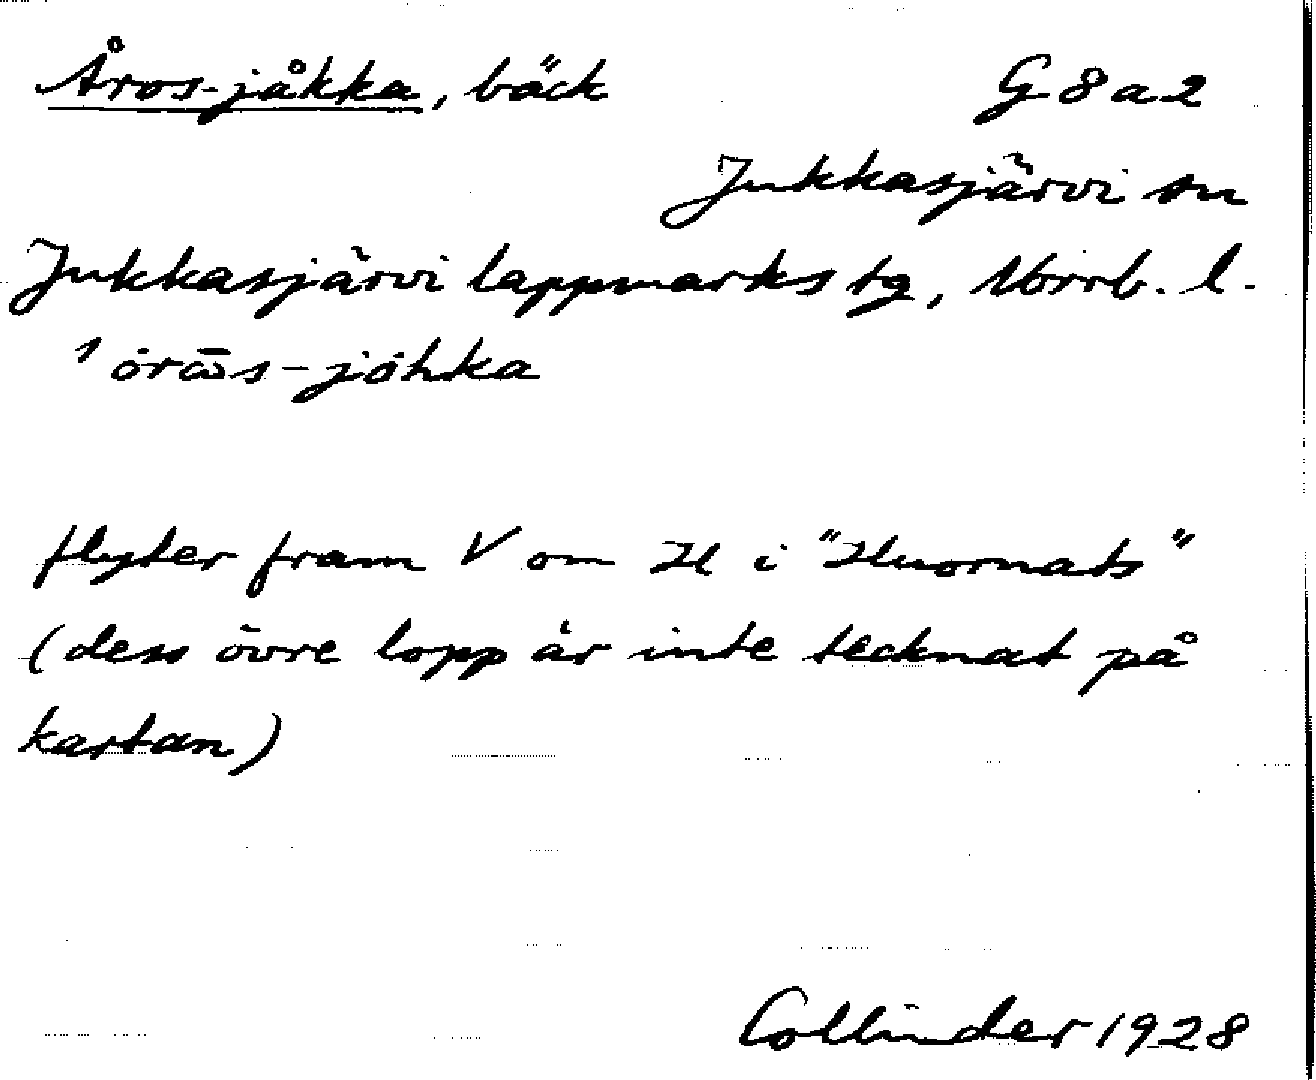 Åros-jåkka, bäck G8a2
Jukkasjärvi sn
Jukkasjärvi lappmarks tg, Norrb. l.
¹ȯrω̄s-jȯhka
flyter fram V om H i "Huornats"
(dess övre lopp är inte tecknat på
kartan)
Collinder 1928